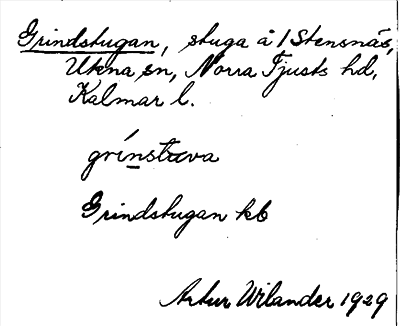 Grindstugan, stuga å 1 Stensnäs,
Ukna sn, Norra Tjusts hd,
Kalmar l.
grínstuva
Grindstugan kb
Artur Wilander 1929